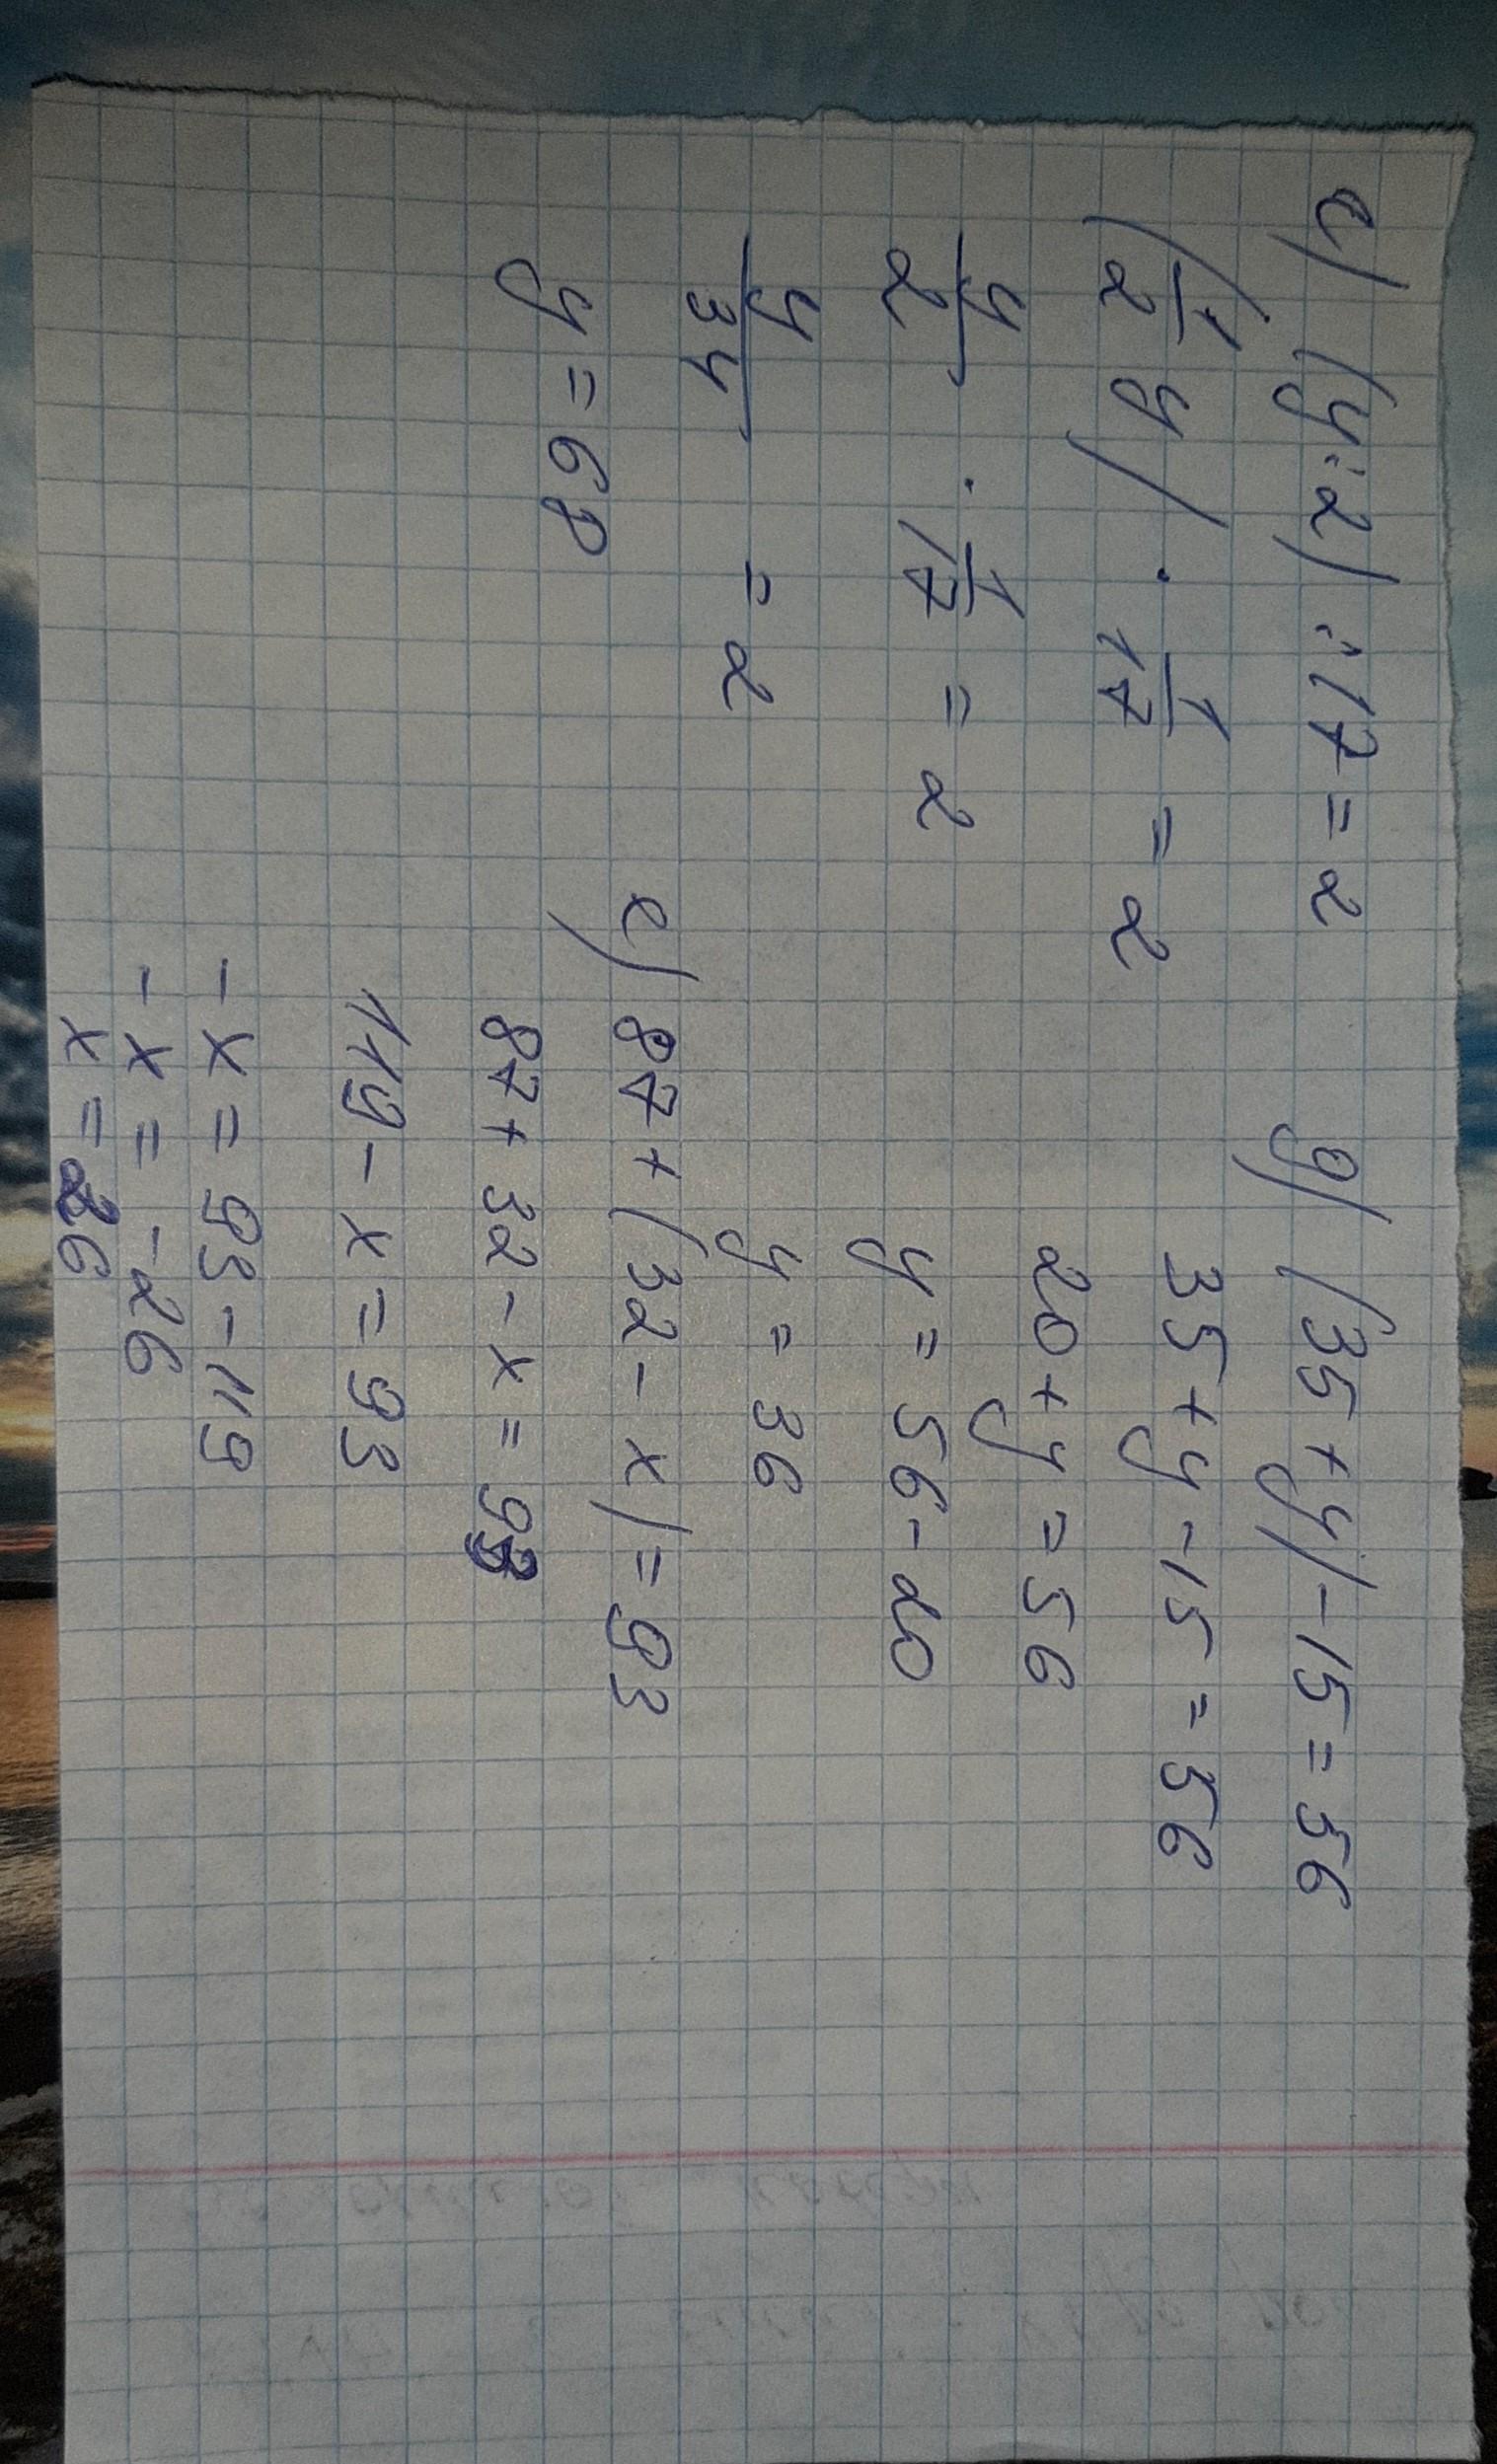 с) (y:2):17=2
(1/2 y) · 1/17 = 2
y/2 · 1/17 = 2
y/34 = 2
y = 68
д) (35+y)-15=56
35+y-15=56
20+y=56
y=56-20
y=36
е) 87+(32-x)=93
87+32-x=93
119-x=93
-x=93-119
-x=-26
x=26